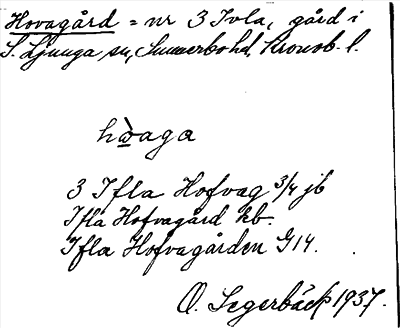 Hovagård = nr 3 Ivla, gård i
S. Ljunga sn, Sunnerbo hd, Kronob. l.
hωaga
3 Ifla Hofvag 3/4 jb
Ifla Hofvagård kb.
Ifla Hofvagården G14.
O. Segerbäck 1937.